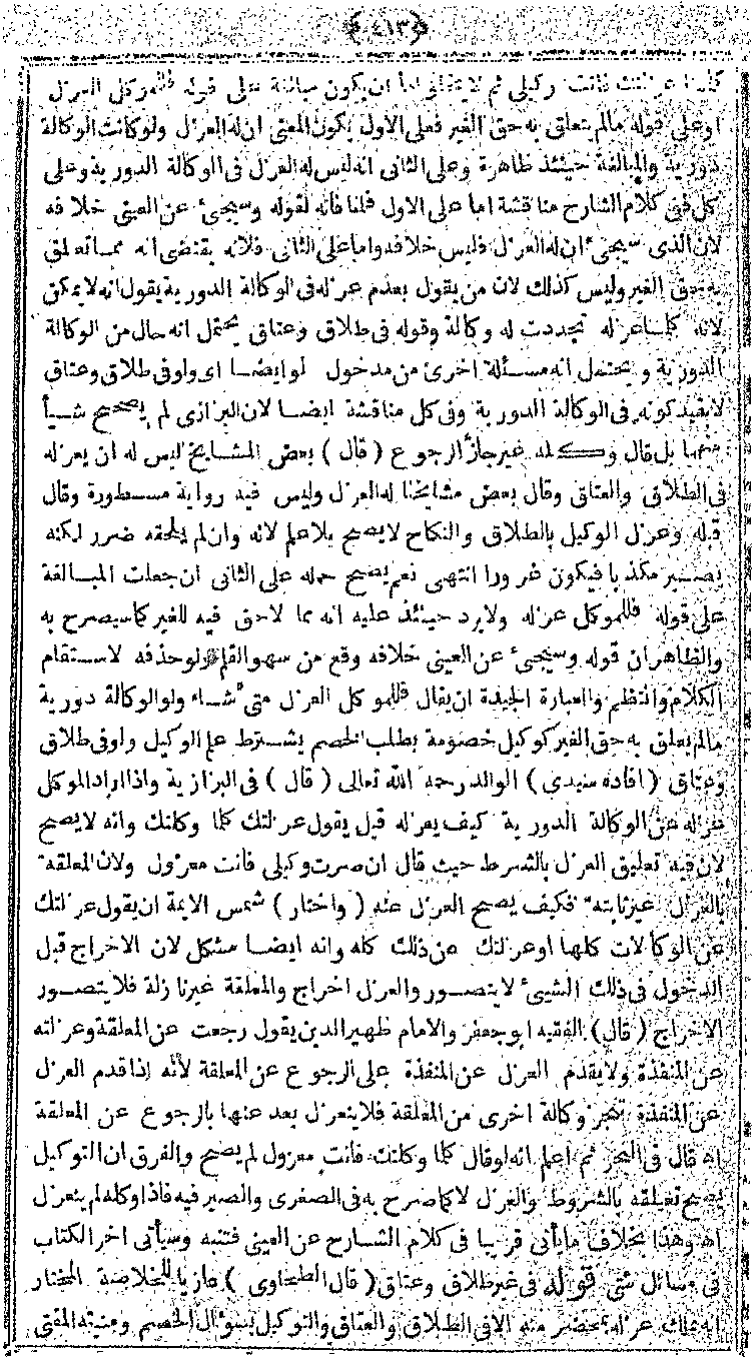 ﴿٤١٣﴾
كلما عزلتك فانت وكيلى ثم لا يخلو اما ان يكون مبالغة على قوله فللموكل العزل
اوعلى قوله مالم يتعلق به حق الغير فعلى الاول يكون المعنى ان له العزل ولو كانت الوكالة
دورية والمبالغة حينئذ ظاهرة وعلى الثانى انه ليس له العزل فى الوكالة الدورية وعلى
كل فنى كلام الشارح مناقشة اما على الاول فلمنافأته لقوله وسيجىء عن العينى خلافه
لان الذى سيجىء ان له العزل فليس خلافه واما على الثانى فلانه يقتضى انه مما تعلق
به حق الغير وليس كذلك لان من يقول بعدم عزله فى الوكالة الدورية يقول انه لا يمكن
لانه كلما عزله تجددت له وكالة وقوله فى طلاق وعتاق يحتمل انه حال من الوكالة
الدورية ويحتمل انه مسئلة اخرى من مدخول لو ايضا اى ولو فى طلاق وعتاق
لا بقيد كونه فى الوكالة الدورية وفى كل مناقشة ايضا لان البزازى لم يصحح شيأ
منهما بل قال وكله غير جائز الرجوع (قال) بعض المشايخ ليس له ان يعزله
فى الطلاق والعتاق وقال بعض مشايخنا له العزل وليس فيه رواية مسطورة وقال
قبله وعزل الوكيل بالطلاق والنكاح لا يصح بلا علم لانه وان لم يلحقه ضرر لكنه
يصير مكذبا فيكون غرورا انتهى نعم يصح حمله على الثانى ان جعلت المبالغة
على قوله فللموكل عزله ولا يرد حينئذ عليه انه مما لاحق فيه للغير كما سيصرح به
والظاهر ان قوله وسيجىء عن العينى خلافه وقع من سهو القلم ولو حذفه لاستقام
الكلام وانتظم والعبارة الجيدة ان يقال فللموكل العزل متى شاء ولو الوكالة دورية
مالم يتعلق به حق الغير كوكيل خصومة بطلب الخصم بشترط علم الوكيل ولو فى طلاق
وعتاق (افاده سيدى) الوالد رحمه الله تعالى (قال) فى البزازية واذا اراد الموكل
عزله عن الوكالة الدورية كيف يعزله قيل يقول عزلتك كلما وكلتك وانه لا يصح
لان فيه تعليق العزل بالشرط حيث قال ان صرت وكيلى فانت معزول ولان المعلقة
بالعزل غير ثابتة فكيف يصح العزل عنه (واختار) شمس الايمة ان يقول عزلتك
عن الوكالات كلها او عزلتك عن ذلك كله وانه ايضا مشكل لان الاخراج قبل
الدخول فى ذلك الشيئ لا يتصور والعزل اخراج والمعلقة غير نازلة فلا يتصور
الاخراج (قال) الفقيه ابو جعفر والامام ظهير الدين يقول رجعت عن المعلقة وعزلته
عن المنفذة ولا يقدم العزل عن المنفذة على الرجوع عن المعلقة لأنه إذا قدم العزل
عن المنفذة تنجز وكالة اخرى من المعلقة فلا ينعزل بعد عنها بالرجوع عن المعلقة
اه قال فى البحر ثم اعلم انه لو قال كلما وكلتك فانت معزول لم يصح والفرق ان التوكيل
يصح تعليقه بالشروط والعزل لا كما صرح به فى الصغرى والصيرفيه فاذا وكله لم ينعزل
اه وهذا بخلاف ما يأتى قريبا فى كلام الشارح عن العينى فتنبه وسيأتى اخر الكتاب
فى مسائل شتى قوله فى غير طلاق وعتاق (قال الطحاوى) عازيا للخلاصة المختار
انه يملك عزله بمحضر منه الا فى الطلاق والعتاق والتوكيل بسؤال الخصم ومنيته المفتى